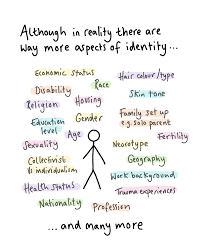 Although in reality there are
way more aspects of identity...
Economic status
Race
Hair colour/type
Disability
Skin tone
Religion
Housing
Family set up
e.g. solo parent
Education
level
Gender
Age
Fertility
Sexuality
Neurotype
Collectivist
vs individualism
Geography
Work background
Health status
Trauma experiences
Nationality
Profession
... and many more